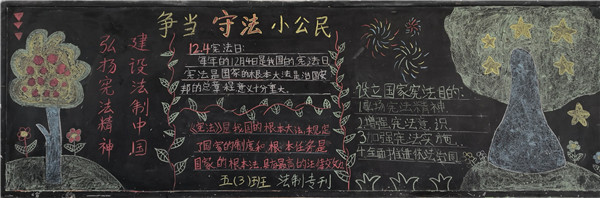 争当守法小公民
弘扬宪法精神
建设法制中国
12.4宪法日:
每年的12月4日是我国的宪法日
宪法是国家的根本大法是治国安
邦的总章程意义十分重大。
《宪法》是我国的根本大法,规定
了国家的制度和根本任务是
国家的根本法
五(3)班 法制专刊
设立国家宪法日目的:
1.弘扬宪法精神
2.增强宪法意识
3.加强宪法实施
4.全面推进依法治国